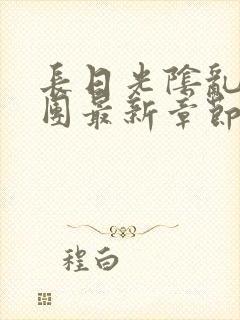 長日光陰亂
圍最新章節
程白